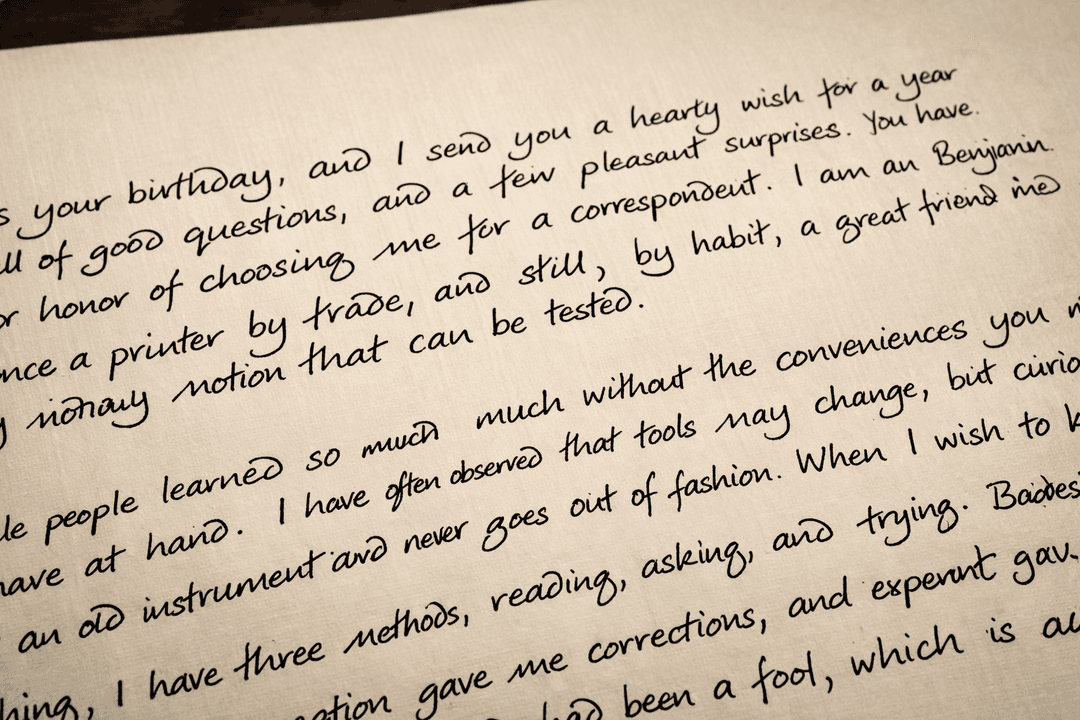 s your birthday, and I send you a hearty wish for a year
ll of good questions, and a few pleasant surprises. You have.
or honor of choosing me for a correspondent. I am an Benjanin.
nce a printer by trade, and still, by habit, a great friend
notion that can be tested.
le people learned so much much without the conveniences you
have at hand. I have often observed that tools may change, but curio
an old instrument and never goes out of fashion. When I wish to k
hing, I have three methods, reading, asking, and trying.
ation gave me corrections, and gav
had been a fool, which is au